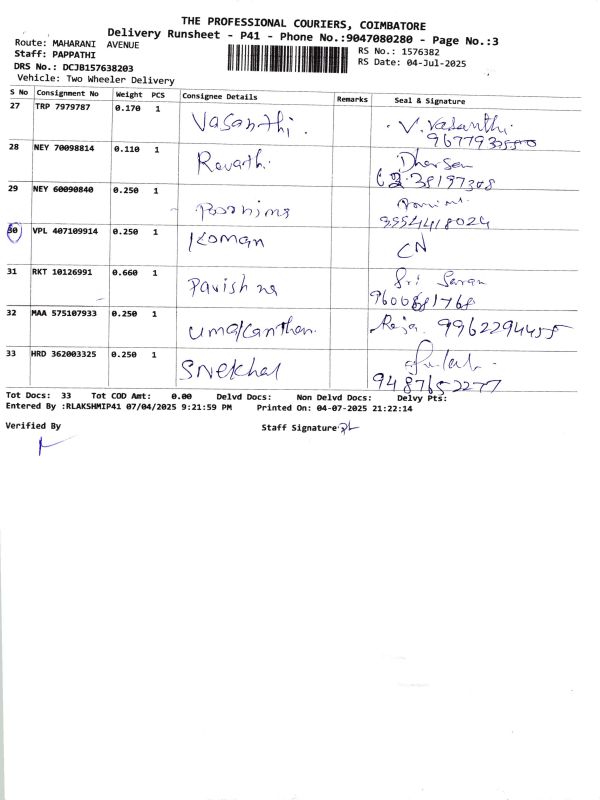 THE PROFESSIONAL COURIERS, COIMBATORE
Delivery Runsheet - P41 - Phone No.:9047080280 - Page No.:3
Route: MAHARANI AVENUE
RS No.: 1576382
Staff: PAPPATHI
RS Date: 04-Jul-2025
DRS No.: DCJB157638203
Vehicle: Two Wheeler Delivery
S No Consignment No Weight PCS Consignee Details Remarks Seal & Signature
27 TRP 7979787 0.170 1 Vasanthi. V. Vasanthi.
28 NEY 70098814 0.110 1 Revathi Dharsan
29 NEY 60090840 0.250 1 Poornima
9994418024
30 VPL 407109914 0.250 1 Koman CN
31 RKT 10126991 0.660 1 Pavishna Sri Saran
32 MAA 575107933 0.250 1 Umakanthan. Raja. 9962294455
33 HRD 362003325 0.250 1 Snekhal
9487652277
Tot Docs: 33 Tot COD Amt: 0.00 Delvd Docs: Non Delvd Docs: Delvy Pts:
Entered By :RLAKSHMIP41 07/04/2025 9:21:59 PM Printed On: 04-07-2025 21:22:14
Verified By Staff Signature